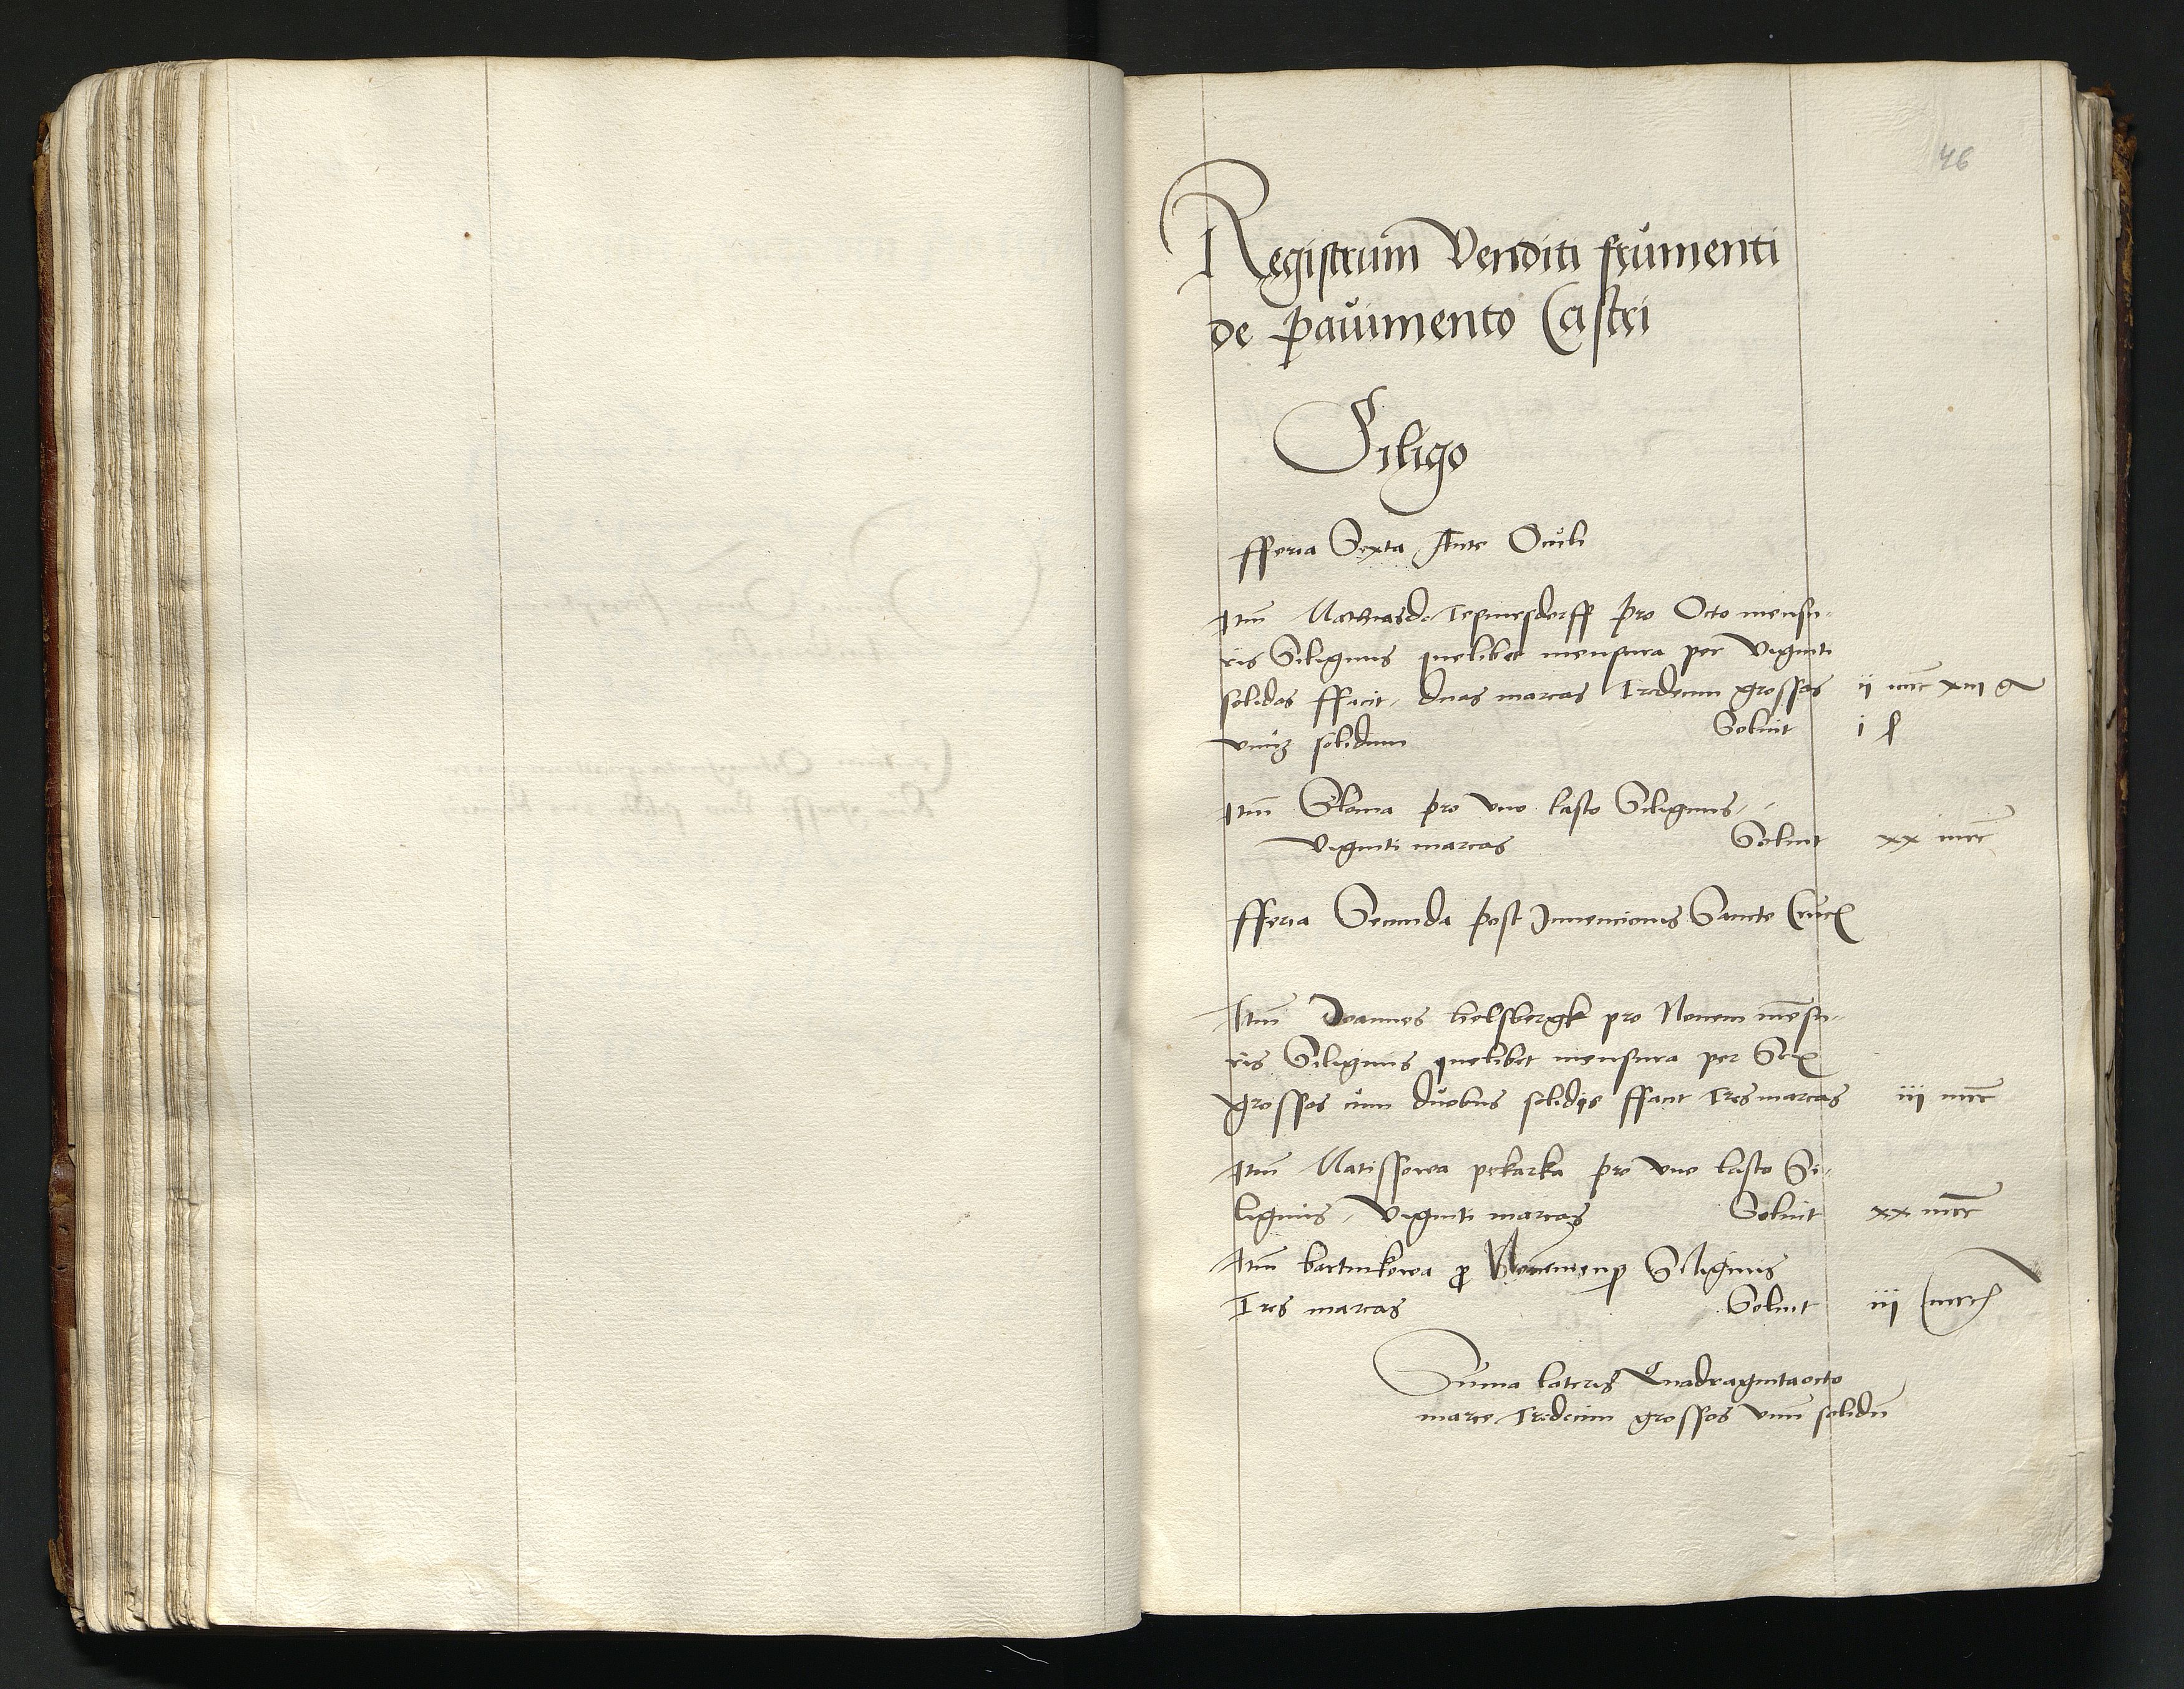 46
Registrum Venditi frumenti
de pavimento Castri
Siligo
fferia Sexta Ante Oculi
Itm Mathias de Tepmesdorff pro Octo mensu-
ris Siliginis quelibet mensura per Viginti
solidos ffacit, duas marcas Tredecim grossos ii mrc xiii g
vnu3 solidum Soluit i s
Itm Sloma pro vno lasto Siliginis,
Viginti marcas Soluit xx mrc
fferia Secunda post Inuencionis Sancte Crucis
Itm Joannes helsbergk pro Nouem mēsu-
ris Siliginis quelibet mensura per Sex
grossos cum duobus solidis ffacit Tres marcas iii mrc
Itm Matissowa pekarka pro vno lasto Si-
liginis, Viginti marcas Soluit xx mrc
Itm bartnikowa p Siliginis
Tres marcas Soluit iii mrc
Suma lateris Quadragintaocto
marce Tredecim grossos vnū solidū